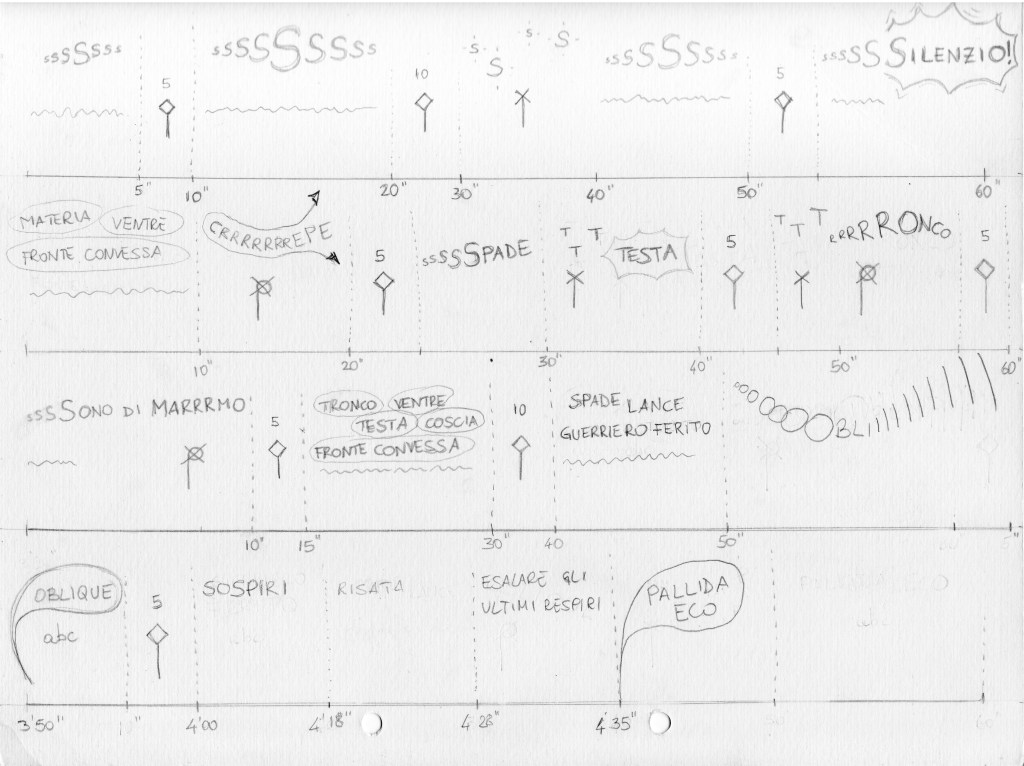 sssSsss 5 sssSSSSsss 10 S S S S sssSSSSsss 5 ssssSSSILENZIO!
5" 10" 20" 30" 40" 50" 60"
MATERIA VENTRE CRRRRRRREPE 5 ssssSSPADE T T T TESTA 5 T T T RRRRRRONCO 5
FRONTE CONVESSA
10" 20" 30" 40" 50" 60"
sssSONO DI MARRRMO 5 TRONCO VENTRE 10 SPADE LANCE OOOOOOOBLIIIIIIIIIII
TESTA COSCIA GUERRIERO FERITO
FRONTE CONVESSA
10" 15" 30" 40 50"
OBLIQUE 5 SOSPIRI RISATA ESALARE GLI PALLIDA
abc ULTIMI RESPIRI ECO
3'50" 4'00 4'18" 4'28" 4'35"